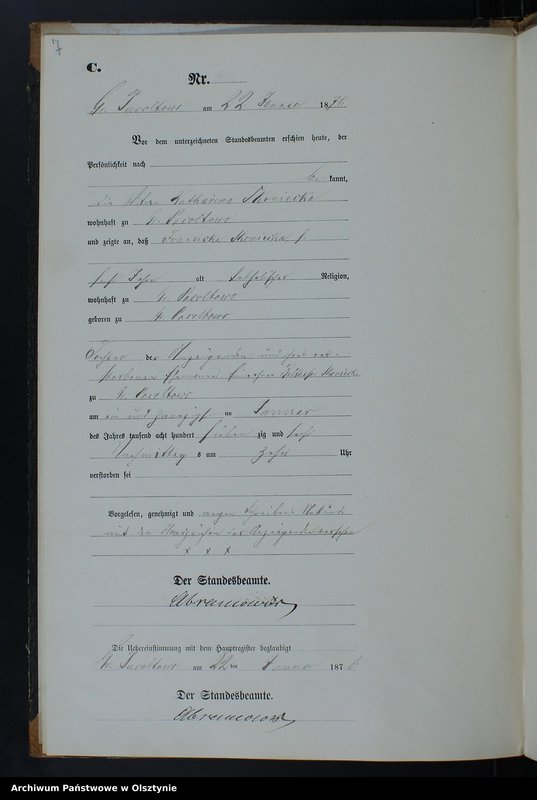 7
C.
Nr.
Gr. Pacoltowo am 22 Januar 1876
Vor dem unterzeichneten Standesbeamten erschien heute, der
Persönlichkeit nach
be kannt,
die Katharina
wohnhaft zu Gr. Pacoltowo
und zeigte an, daß
alt katholischer Religion,
wohnhaft zu Gr. Pacoltowo
geboren zu Gr. Pacoltowo
Tochter der Anzeigenden und ihres ver-
storbenen Ehemannes
zu Gr. Pacoltowo
am ein und zwanzigsten Januar
des Jahres tausend acht hundert sieben zig und sechs
Nachmittag s um zehn Uhr
verstorben sei
Vorgelesen, genehmigt und wegen Schreibens Unkunde
mit den Handzeichen der Anzeigenden versehen
x x x
Der Standesbeamte.
Abramowski
Die Uebereinstimmung mit dem Hauptregister beglaubigt
Gr. Pacoltowo am 22ten Januar 1876
Der Standesbeamte.
Abramowski
Archiwum Państwowe w Olsztynie